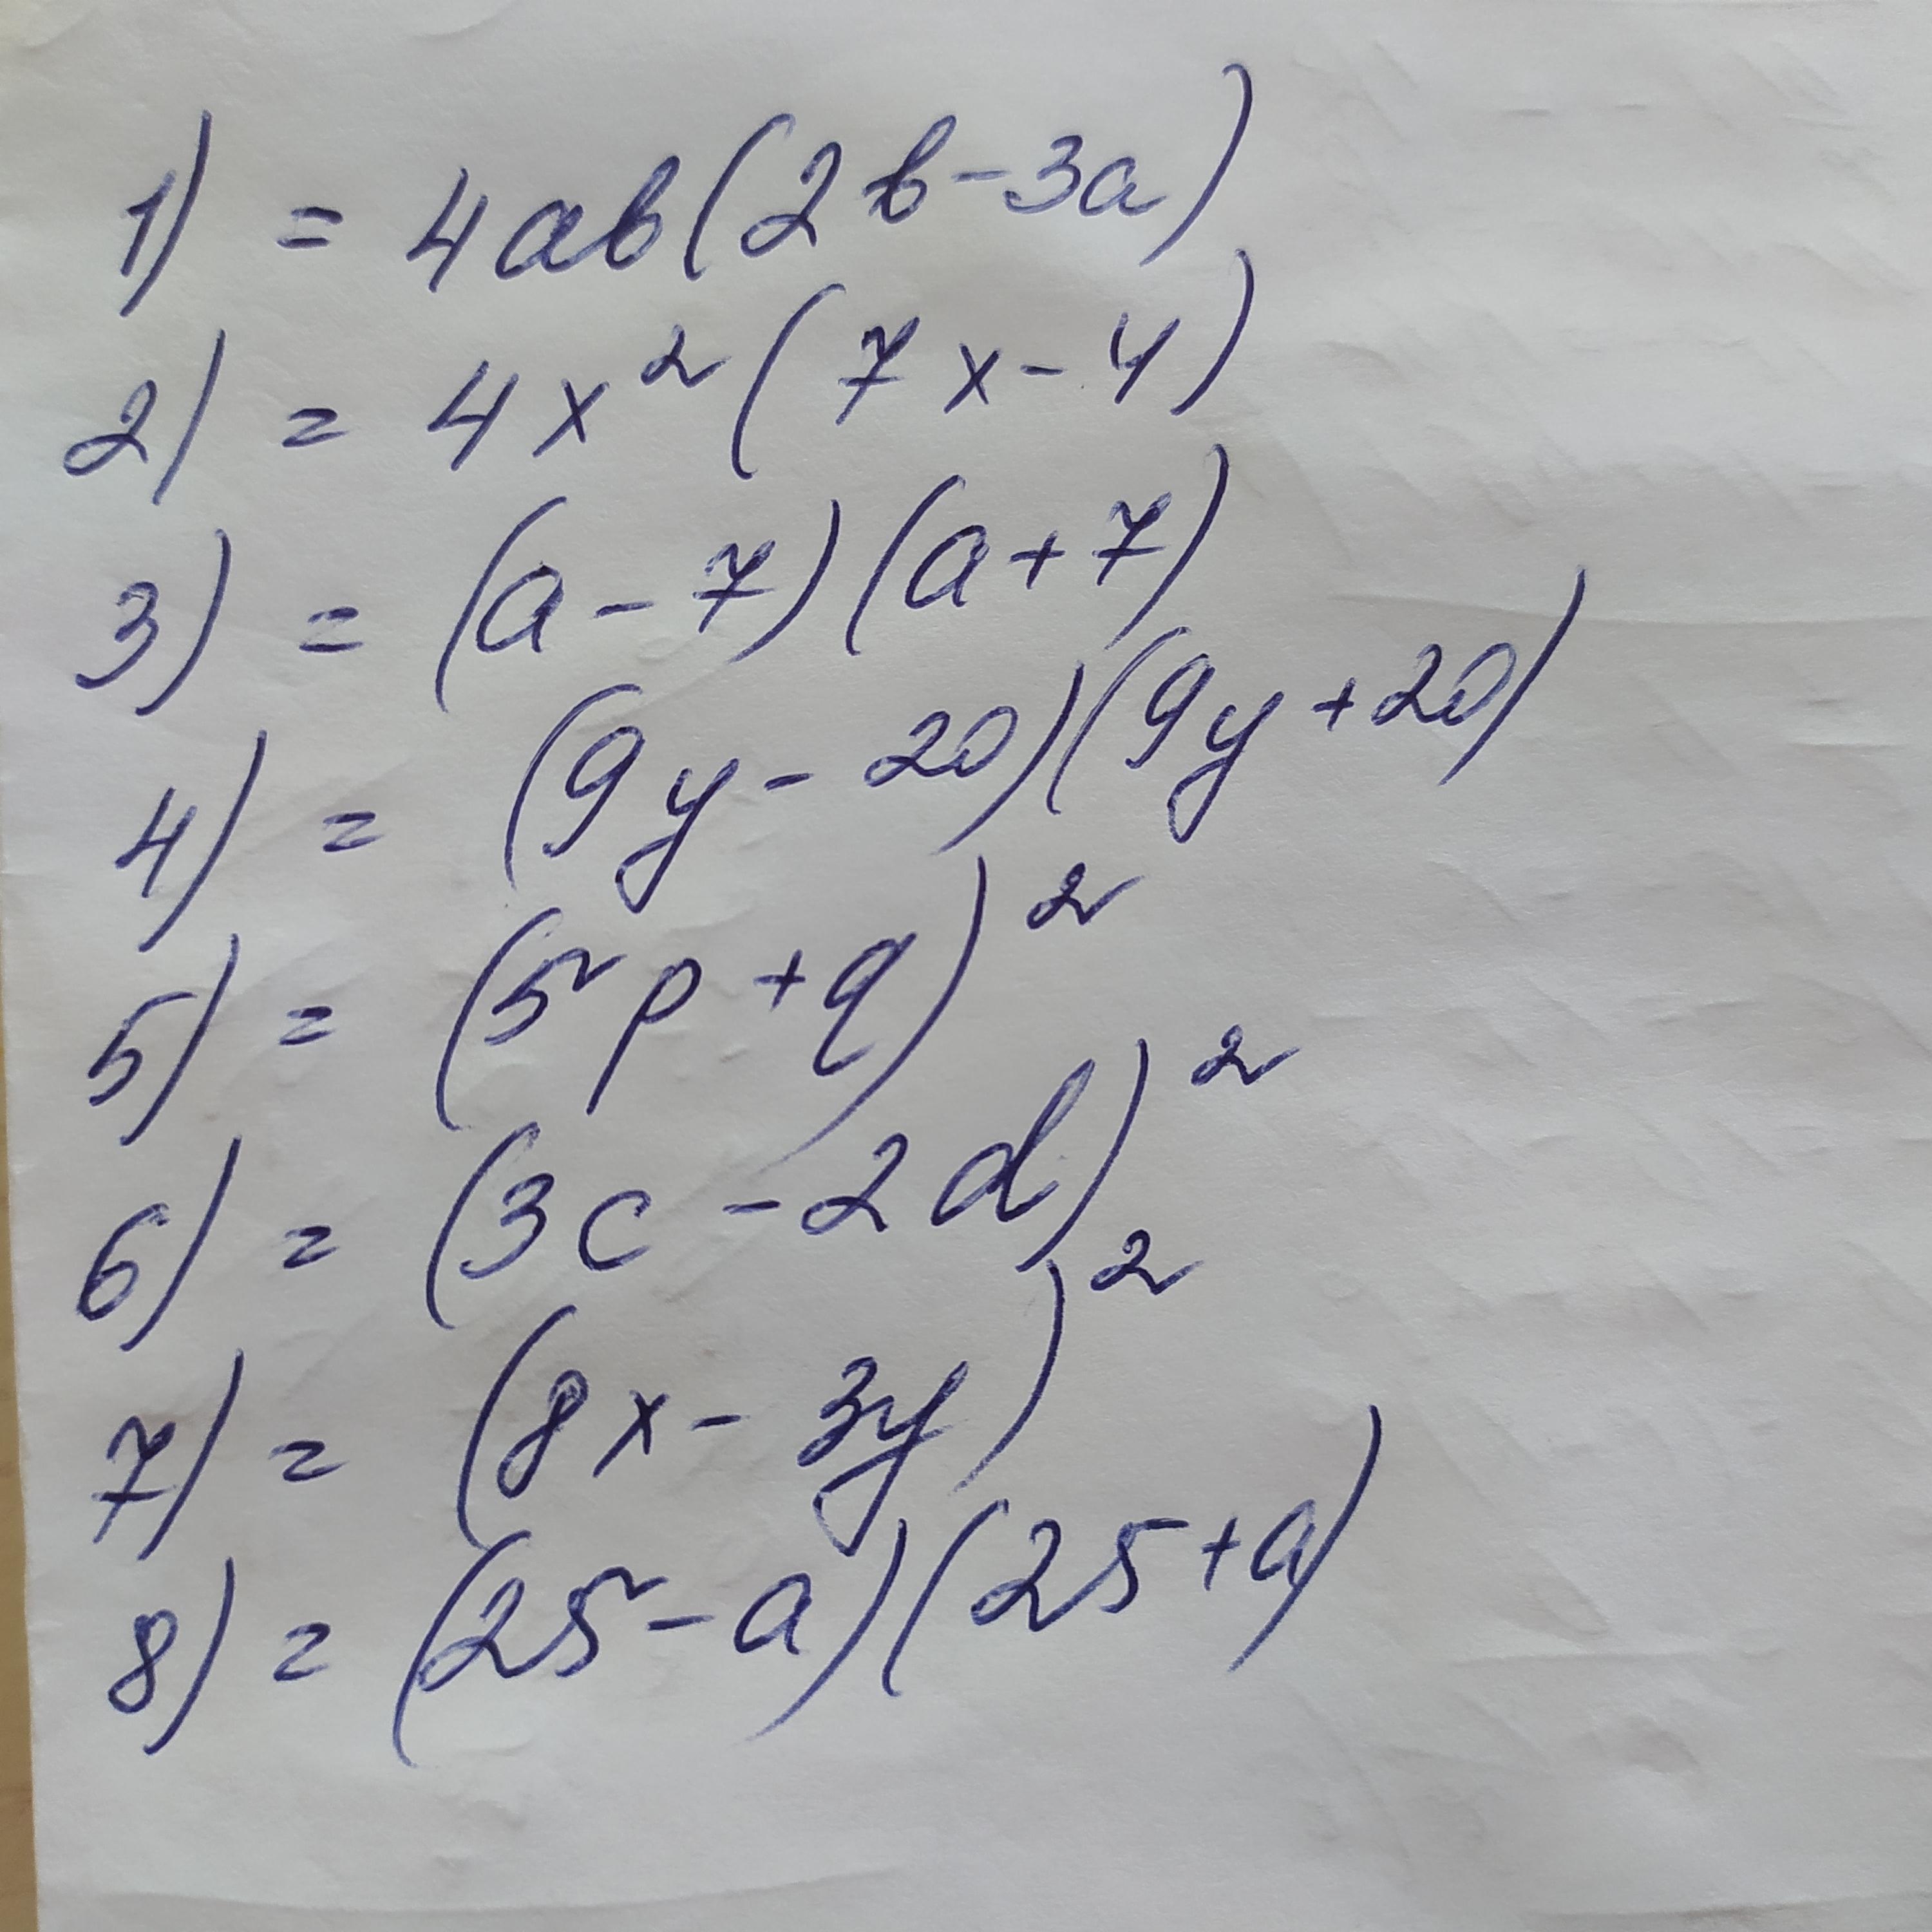 1) = 4ab(2b-3a)
2) = 4x²(7x-4)
3) = (a-7)(a+7)
4) = (9y-20)(9y+20)
5) = (5p+q)²
6) = (3c-2d)²
7) = (8x-3y)²
8) = (25-a)(25+a)